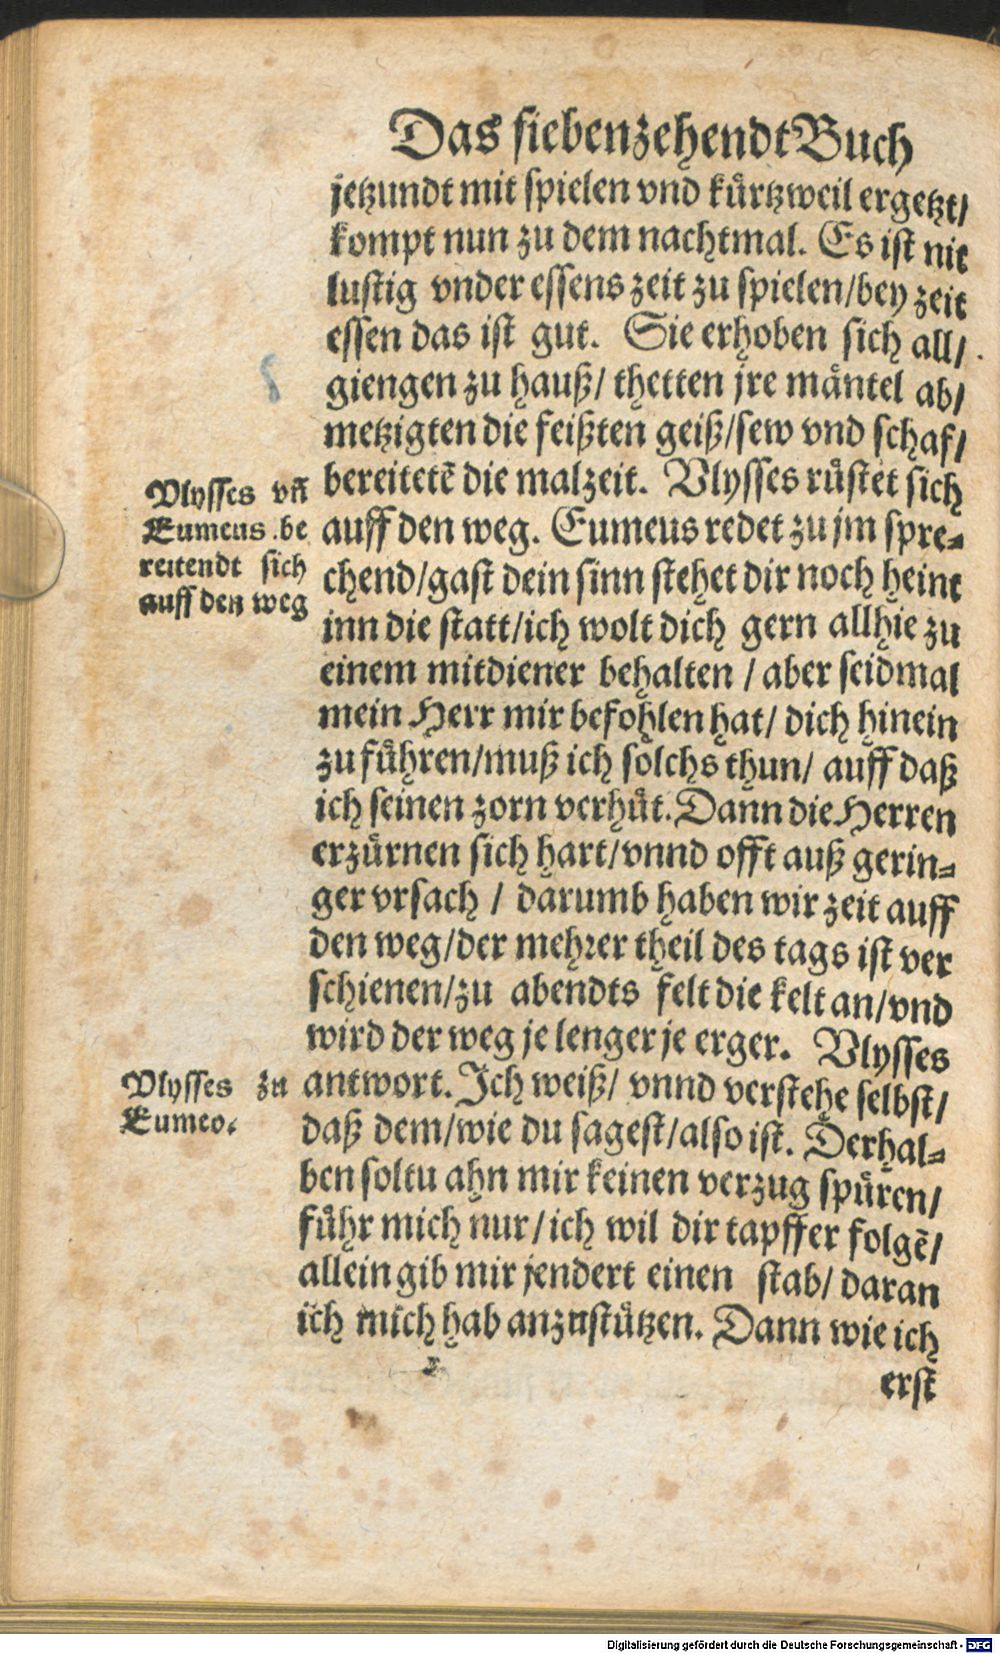 Das siebenzehendt Buch
jetzundt mit spielen vnd kůrtzweil ergetzt/
kompt nun zu dem nachtmal. Es ist nit
lustig vnder essens zeit zu spielen/bey zeit
essen das ist gut. Sie erhoben sich all/
giengen zu hauß/ thetten jre mäntel ab/
metzigten die feißten geiß/sew vnd schaf/
bereitetẽ die malzeit. Vlysses růstet sich
auff den weg. Eumeus redet zu jm spre-
chend/gast dein sinn stehet dir noch heint
inn die statt/ich wolt dich gern allhie zu
einem mitdiener behalten / aber seidmal
mein Herr mir befohlen hat/ dich hinein
zu führen/muß ich solchs thun/ auff daß
ich seinen zorn verhůt. Dann die Herren
erzůrnen sich hart/vnnd offt auß gerin-
ger vrsach / darumb haben wir zeit auff
den weg/der mehrer theil des tags ist ver
schienen/zu abendts felt die kelt an/vnd
wird der weg je lenger je erger. Vlysses
antwort. Ich weiß/ vnnd verstehe selbst/
daß dem/wie du sagest/also ist. Derhal-
ben soltu ahn mir keinen verzug spůren/
fůhr mich nur/ich wil dir tapffer folgẽ/
allein gib mir jendert einen stab/ daran
ich mich hab anzustůtzen. Dann wie ich
erst
Vlysses vñ
Eumeus be
reitendt sich
auff den weg
Vlysses zu
Eumeo.
Digitalisierung gefördert durch die Deutsche Forschungsgemeinschaft - DFG